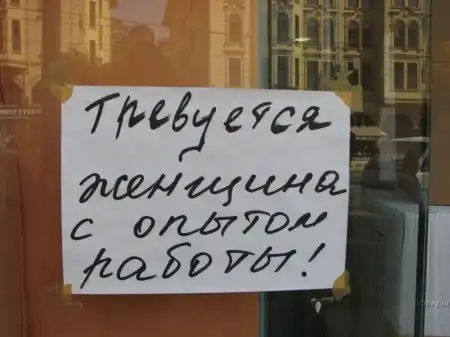 Требуется
женщина
с опытом
работы!